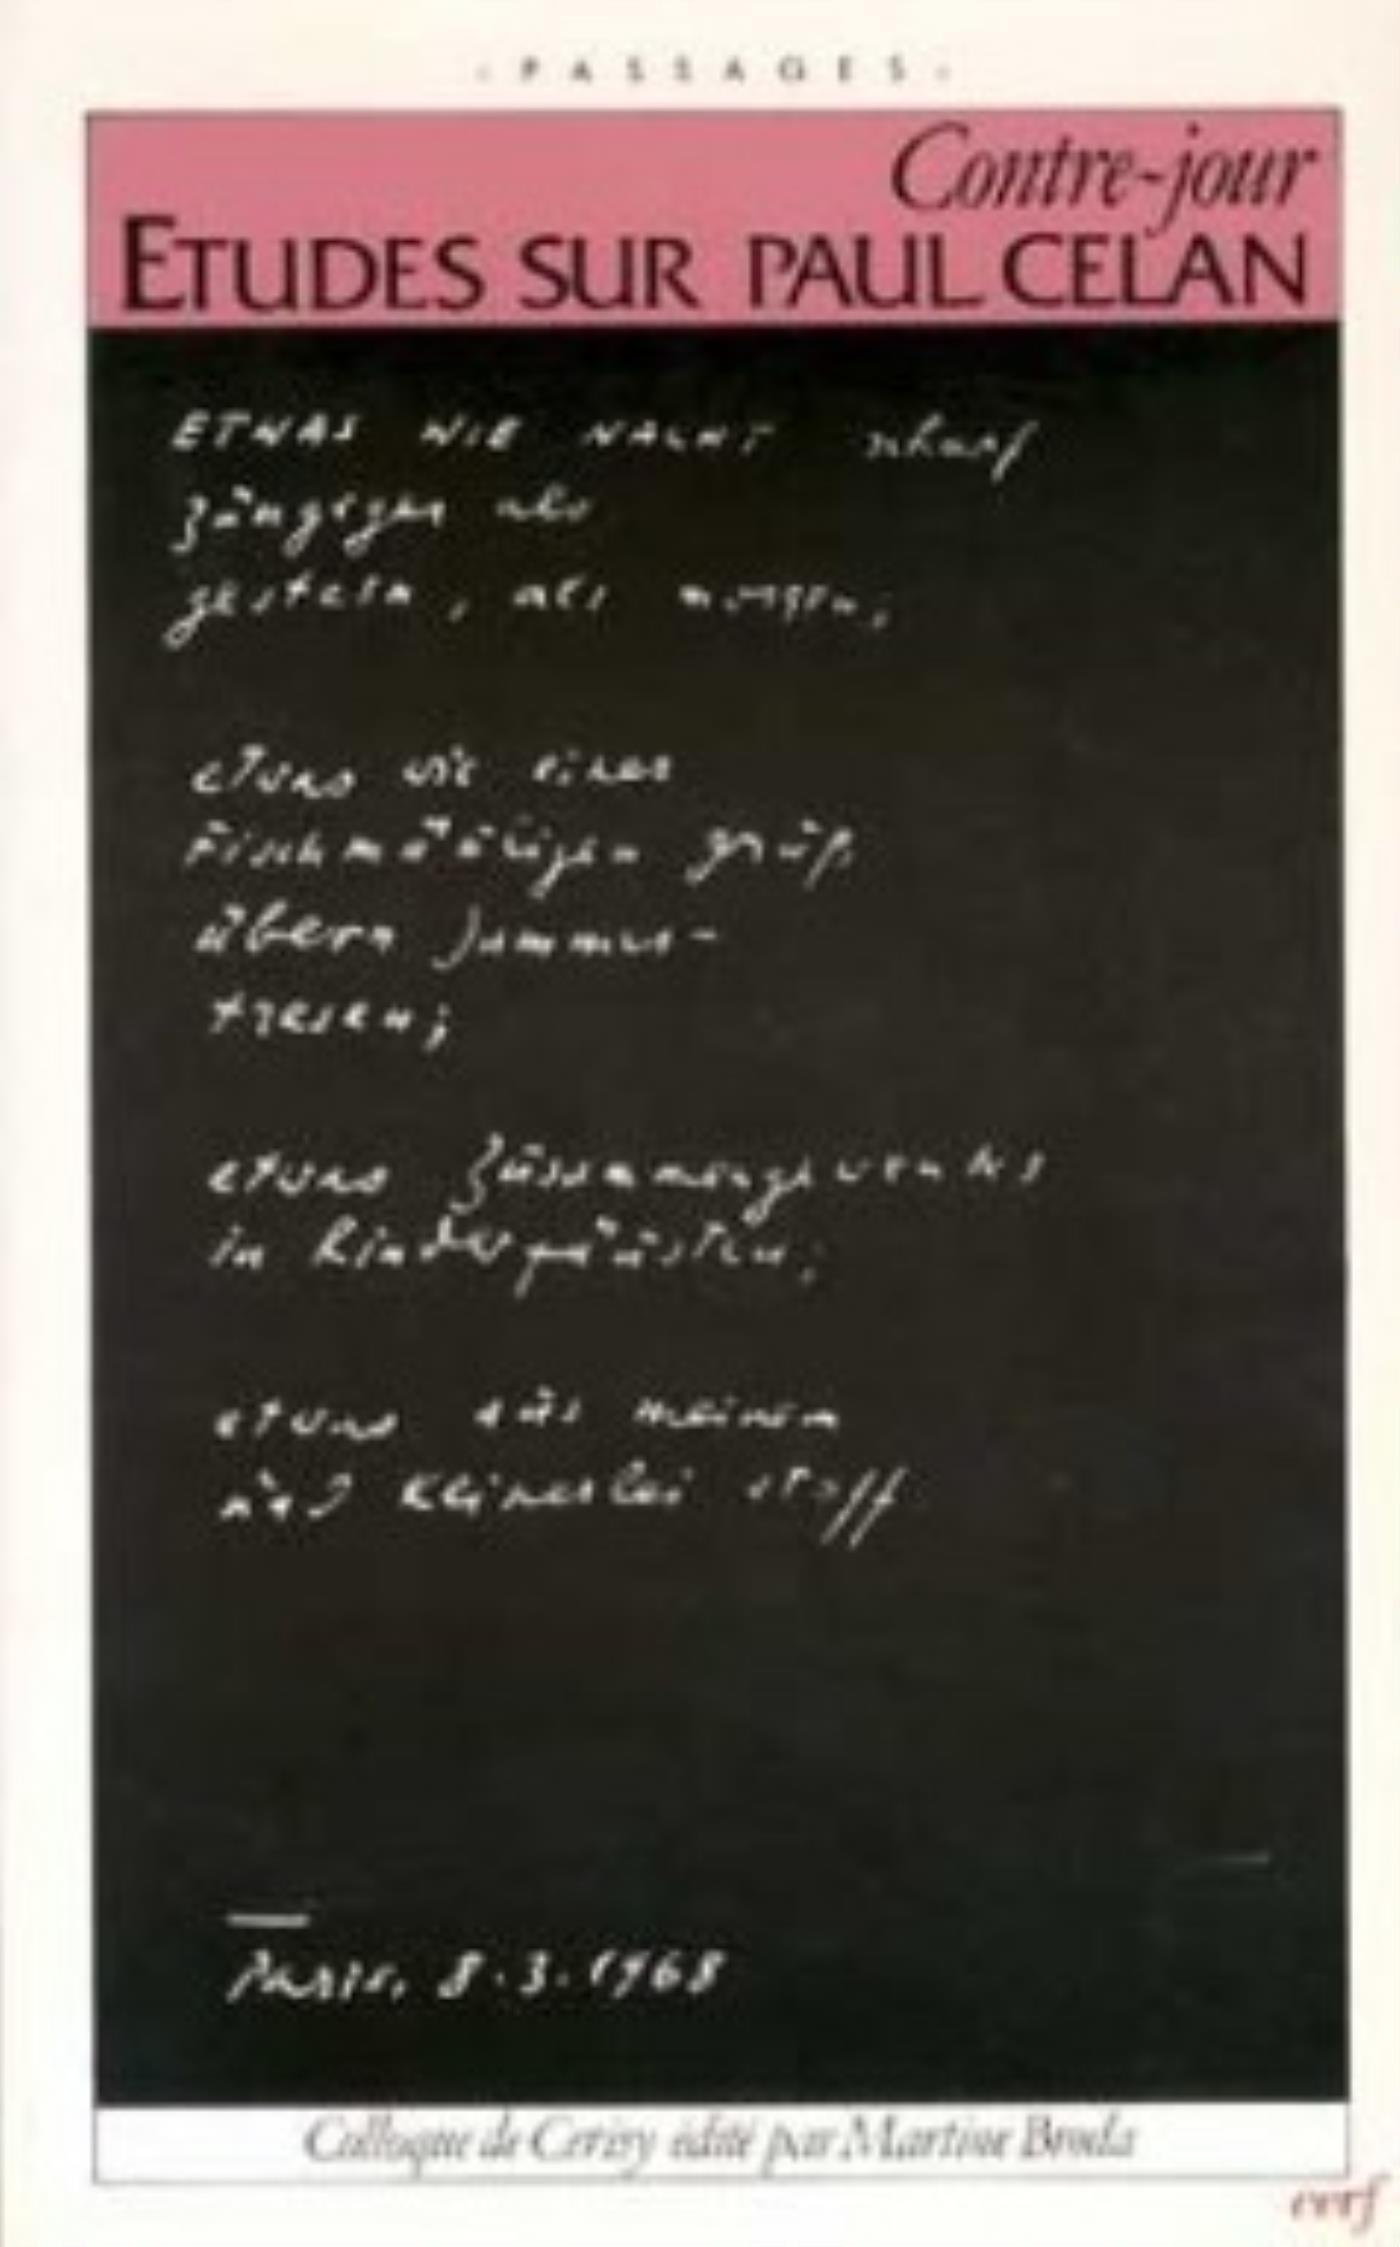 - PASSAGES -
Contre-jour
ETUDES SUR PAUL CELAN
ETWAS WIE NACHT scharf
züngiger als
gestern, als morgen;
etwas wie einer
Fischmäuligen gruß
übern Jammer-
tresen;
etwas Zusammengewehtes
in Kinderfäusten;
etwas aus meinem
und keinerlei stoff
Paris, 8.3.1968
Colloque de Cerisy édité par Martine Broda
cerf